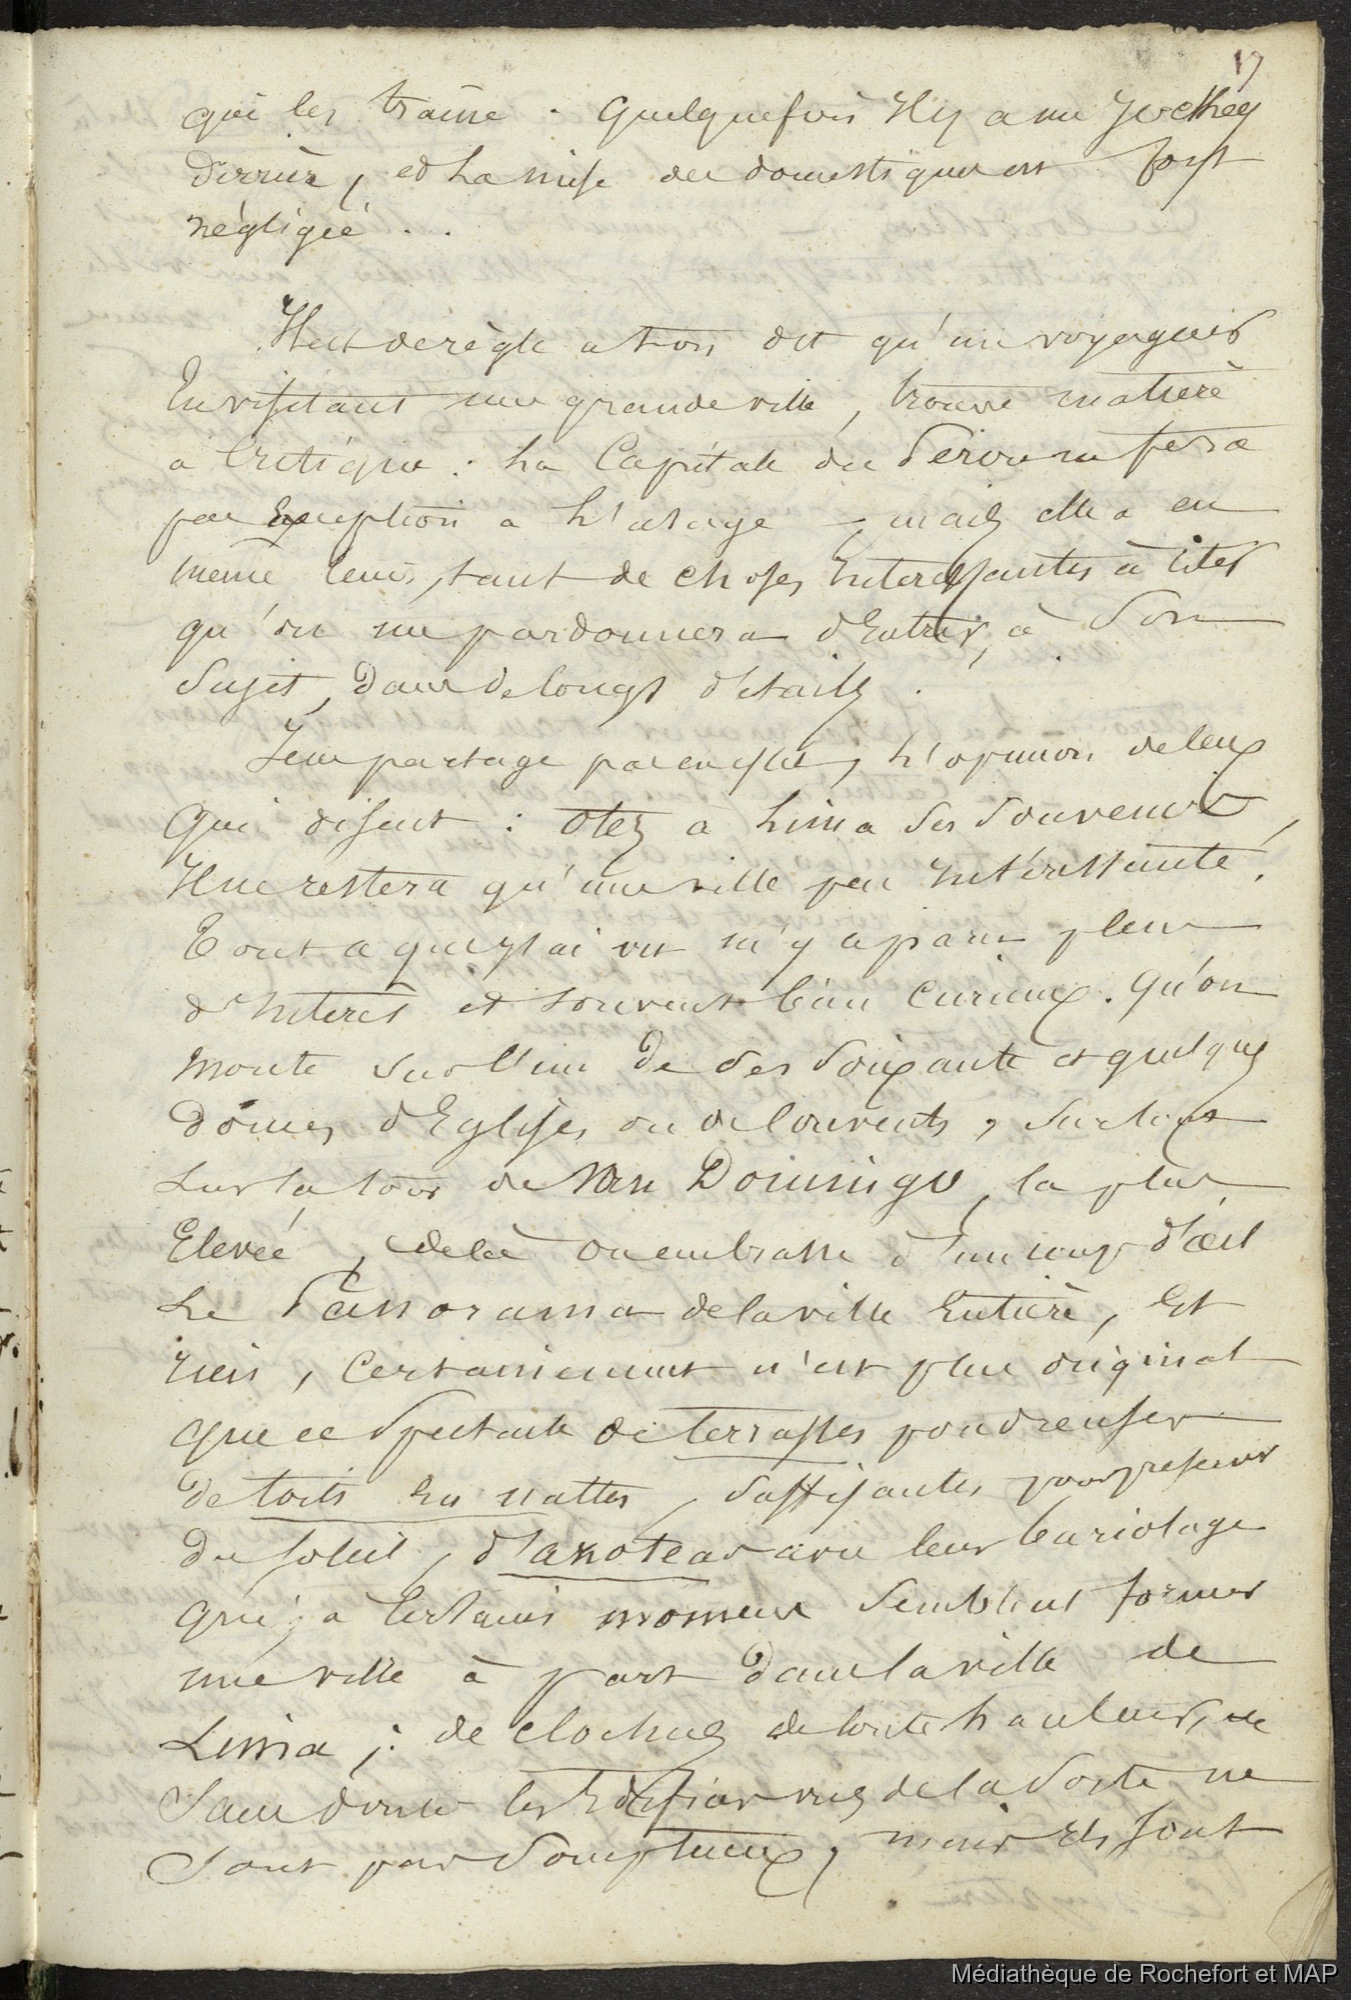 17
qui les traine. Quelquefois Il y a un Jockey
derrière, et La mise des domestiques est fort
négligée..
Il est de règle a t-on dit qu'un voyageur
En visitant une grande ville, trouve matière
à Critique: La Capitale du Pérou ne fera
pas Exception a L'usage, mais elle a en
même tems, tant de choses Intéressantes à citer
qu'on me pardonnera d'Entrer, à Son
Sujet, dans de longs détails.
Je ne partage pas en effet, L'opinion de ceux
Qui disent: otez a Lima Ses Souvenirs,
Il ne restera qu'une ville peu Intéressante!
Tout ce que j'ai vu m'y a paru plein
d'Interêt et souvent bien Curieux. Qu'on
monte sur l'un de Ses Soixante et quelques
dômes d'Eglises ou de Couvents, Surtout
Sur la tour de San Domingo, la plus
Elevée, de là on embrasse d'un coup d'œil
Le Panorama de la ville Entière, Et
rien, Certainement n'est plus original
Que ce Spectacle de terrasses poudreuses
de toits En nattes, Suffisantes pour préserver
du soleil, d'azoteas avec leur bariolage
Qui, à Certains momens Semblent former
une ville à part dans la ville de
Lima;: de clochers de toute hauteur,
Sans doute les Edifices vus de la Sorte ne
Sont pas Somptueux, mais Ils sont
Médiathèque de Rochefort et MAP